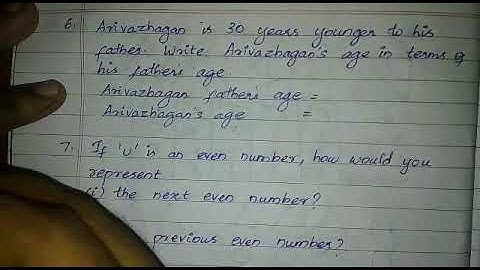 6. Arivazhagan is 30 years younger to his
father. Write Arivazhagan's age in terms of
his father's age.
Arivazhagan father's age =
Arivazhagan's age =
7. If 'U' is an even number, how would you
represent
(i) the next even number?
previous even number?